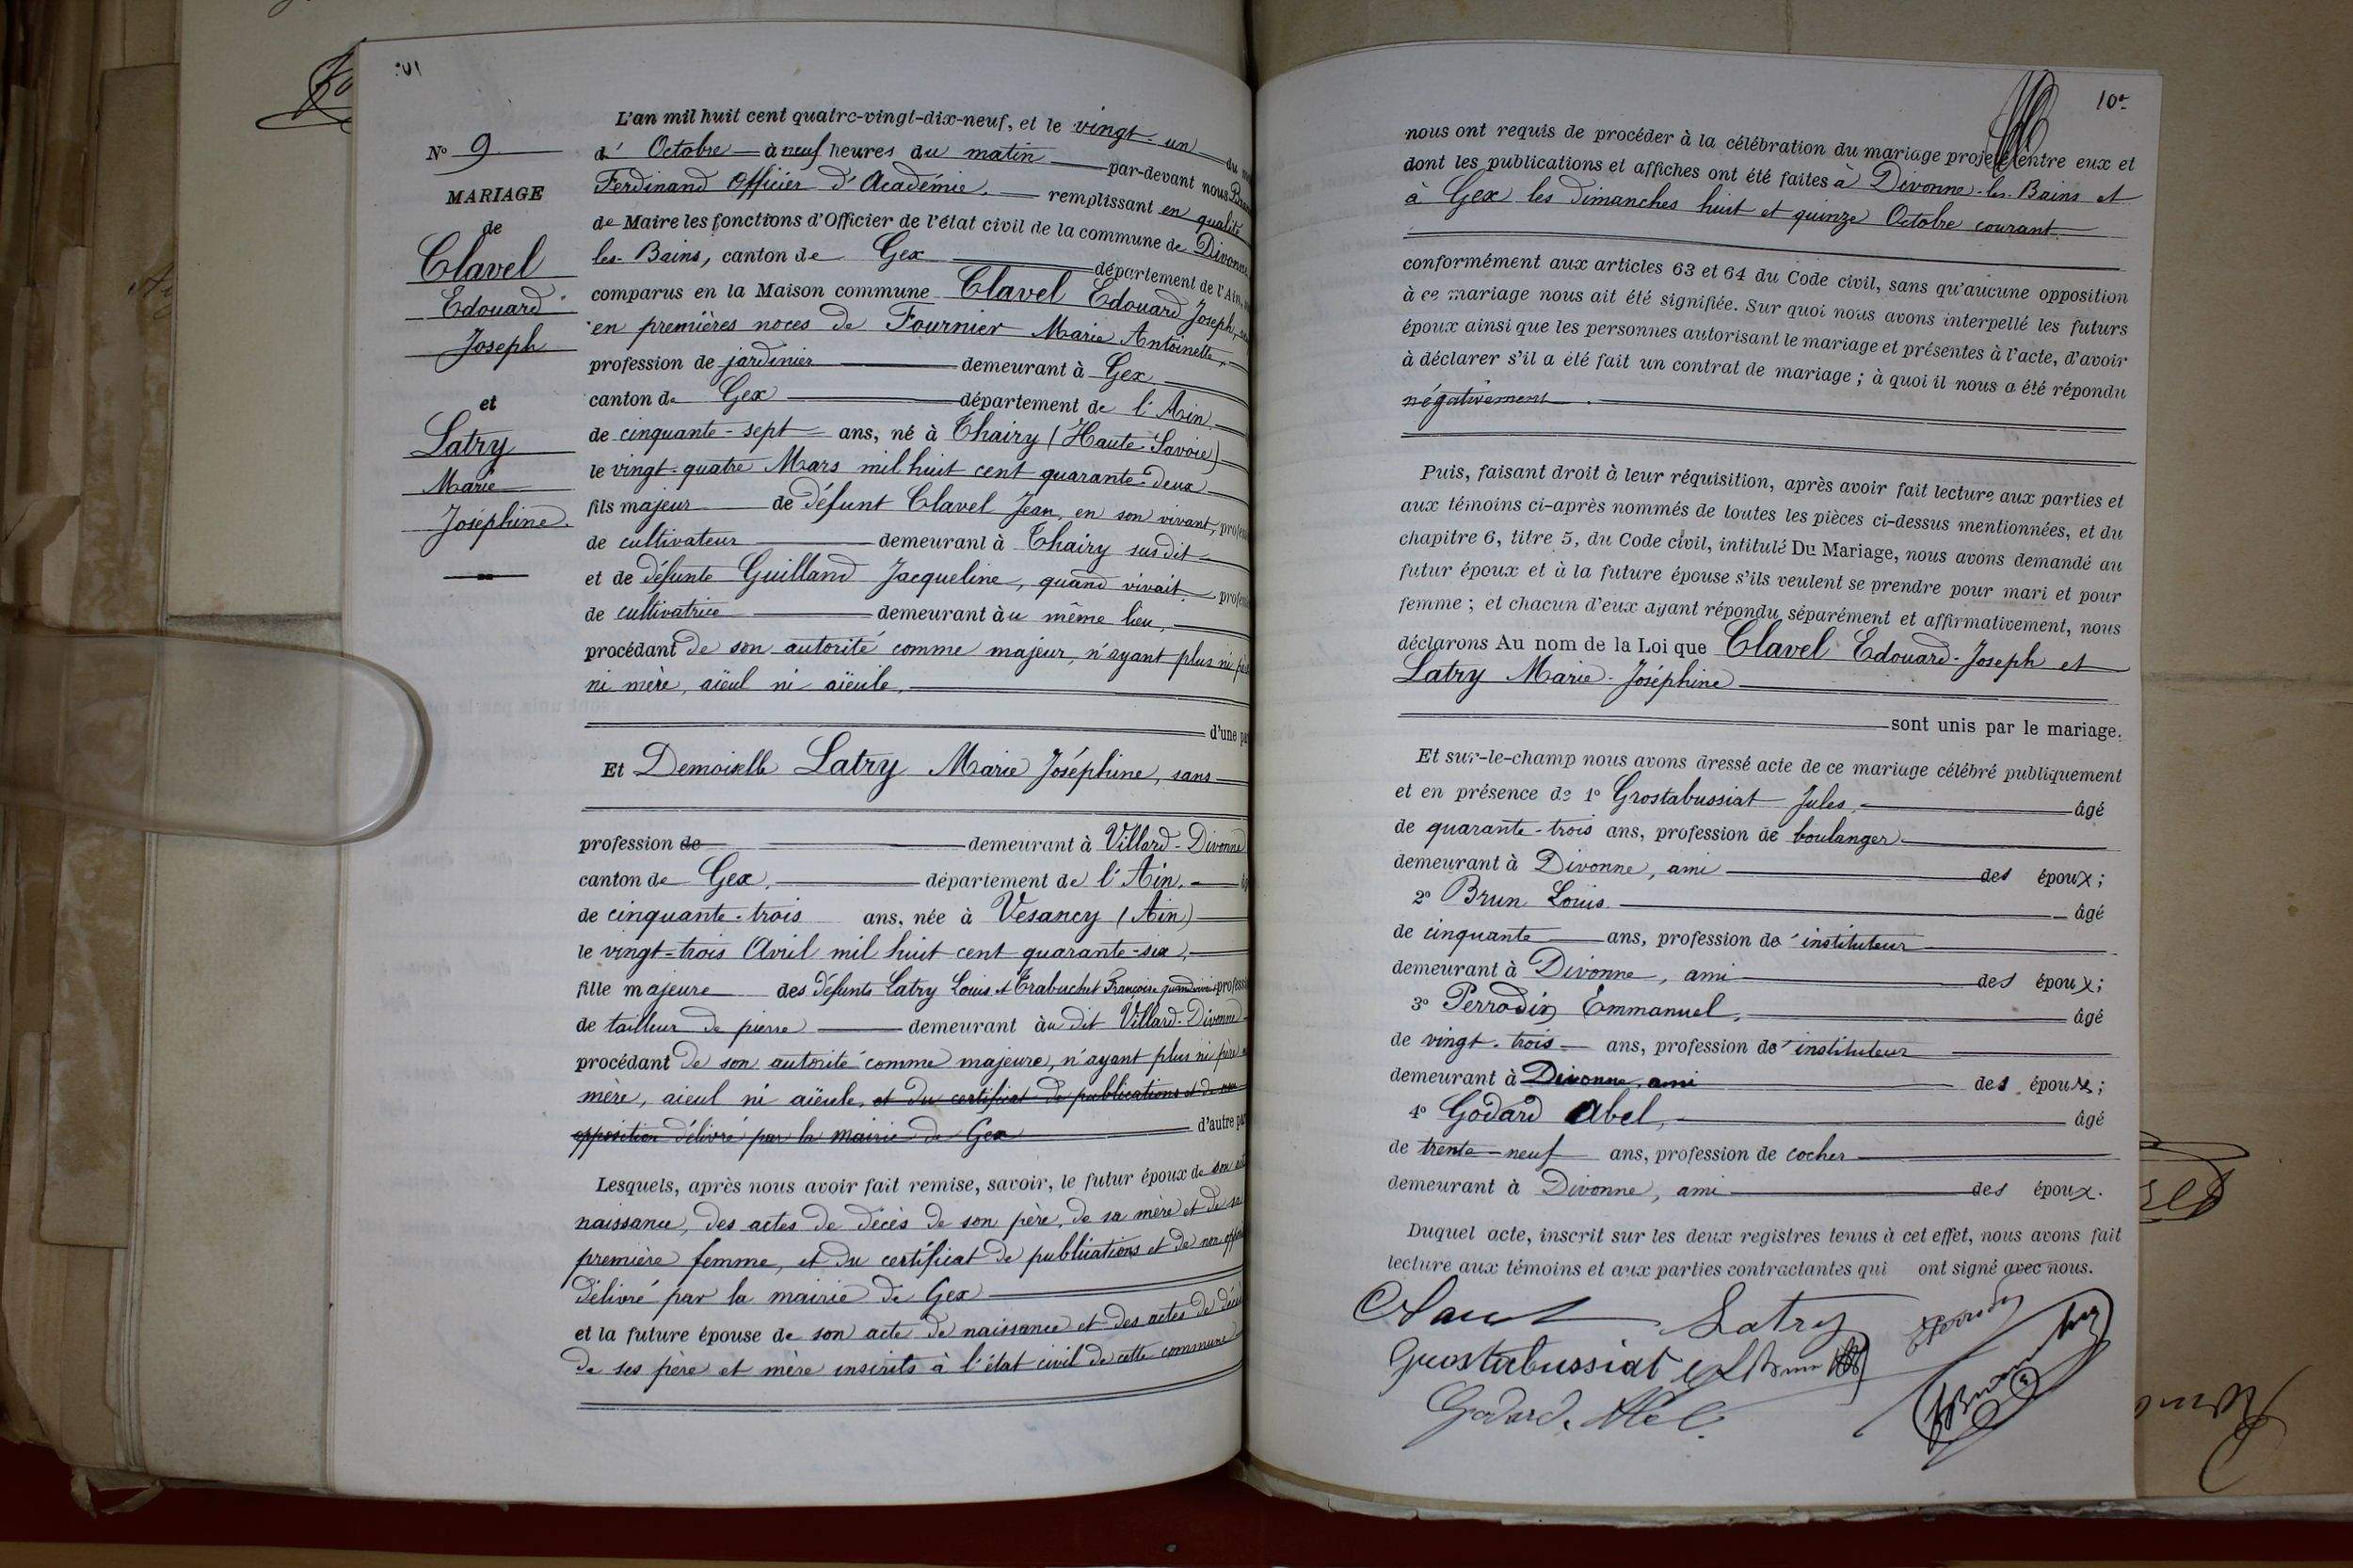 N° 9
MARIAGE
de
Clavel
Edouard
Joseph
et
Latry
Marie
Joséphine.
L'an mil huit cent quatre-vingt-dix-neuf, et le vingt-un du
d'Octobre à neuf heures du matin par-devant nous
Ferdinand Officier d'Académie, remplissant en qualité
de Maire les fonctions d'Officier de l'état civil de la commune de Divonne
les-Bains, canton de Gex département de l'Ain,
comparus en la Maison commune Clavel Edouard Joseph,
en premières noces de Fournier Marie Antoinette,
profession de jardinier demeurant à Gex,
canton de Gex département de l'Ain,
de cinquante-sept ans, né à Thairy (Haute-Savoie)
le vingt-quatre Mars mil huit cent quarante-deux
fils majeur de défunt Clavel Jean, en son vivant,
de cultivateur demeurant à Thairy susdit
et de défunte Guilland Jacqueline, quand vivait,
de cultivatrice demeurant àu même lieu,
procédant de son autorité comme majeur, n'ayant plus ni
ni mère, aïeul ni aïeule,
d'une
Et Demoiselle Latry Marie Joséphine, sans
profession de demeurant à Villard-Divonne
canton de Gex, département de l'Ain,
de cinquante-trois ans, née à Vesancy (Ain)
le vingt-trois Avril mil huit cent quarante-six,
fille majeure des défunts Latry Louis et Trabuchet Françoise quand
de tailleur de pierre demeurant àu dit Villard-Divonne
procédant de son autorité comme majeure, n'ayant plus ni père
mère, aïeul ni aïeule, et du certificat de publications et de non
opposition délivré par la mairie de Gex d'autre
Lesquels, après nous avoir fait remise, savoir, le futur époux de son
naissance, des actes de décès de son père, de sa mère et de sa
première femme, et du certificat de publications et de non
délivré par la mairie de Gex
et la future épouse de son acte de naissance et des actes de
de ses père et mère inscrits à l'état civil de cette commune
10
nous ont requis de procéder à la célébration du mariage projeté entre eux et
dont les publications et affiches ont été faites à Divonne-les-Bains et
à Gex les dimanches huit et quinze Octobre courant.
conformément aux articles 63 et 64 du Code civil, sans qu'aucune opposition
à ce mariage nous ait été signifiée. Sur quoi nous avons interpellé les futurs
époux ainsi que les personnes autorisant le mariage et présentes à l'acte, d'avoir
à déclarer s'il a été fait un contrat de mariage ; à quoi il nous a été répondu
négativement.
Puis, faisant droit à leur réquisition, après avoir fait lecture aux parties et
aux témoins ci-après nommés de toutes les pièces ci-dessus mentionnées, et du
chapitre 6, titre 5, du Code civil, intitulé Du Mariage, nous avons demandé au
futur époux et à la future épouse s'ils veulent se prendre pour mari et pour
femme ; et chacun d'eux ayant répondu séparément et affirmativement, nous
déclarons Au nom de la Loi que Clavel Edouard-Joseph et
Latry Marie-Joséphine
sont unis par le mariage.
Et sur-le-champ nous avons dressé acte de ce mariage célébré publiquement
et en présence de 1° Grostabussiat Jules, âgé
de quarante-trois ans, profession de boulanger
demeurant à Divonne, ami des époux;
2° Brun Louis âgé
de cinquante ans, profession d'instituteur
demeurant à Divonne, ami des époux;
3° Perrodin Emmanuel, âgé
de vingt-trois ans, profession d'instituteur
demeurant à Divonne, ami des époux;
4° Godard Abel, âgé
de trente-neuf ans, profession de cocher
demeurant à Divonne, ami des époux.
Duquel acte, inscrit sur les deux registres tenus à cet effet, nous avons fait
lecture aux témoins et aux parties contractantes qui ont signé avec nous.
Latry
Grostabussiat
Godard Abel